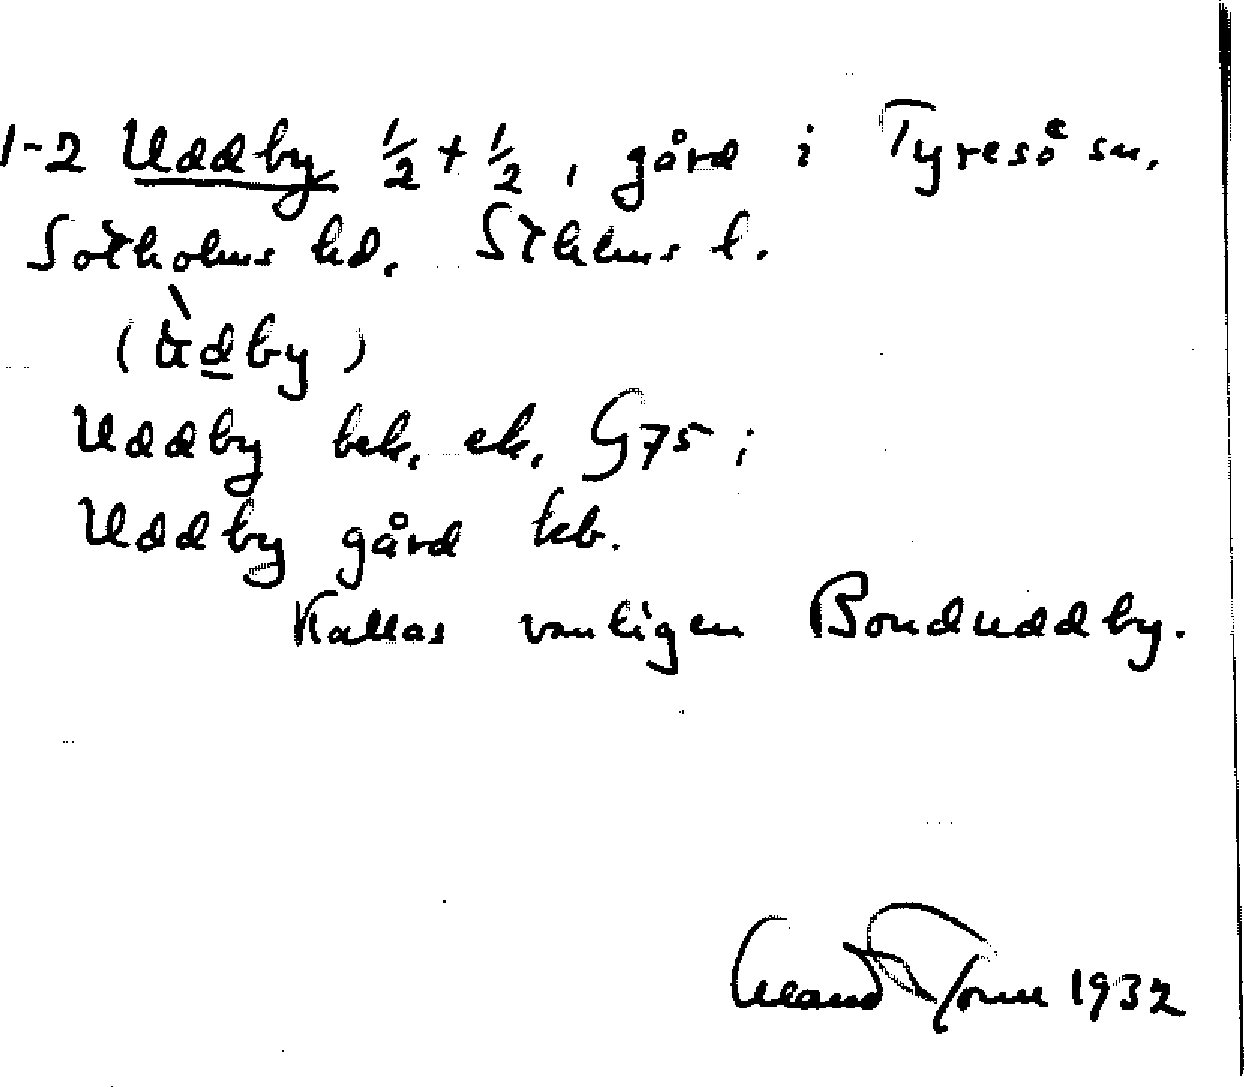 1-2 Uddby ½ + ½, gård i Tyresö sn.
Sotholms hd. Sthlms l.
(ùdby)
Uddby bek. ek. G75;
Uddby gård kb.
Kallas vanligen Bonduddby.
1932